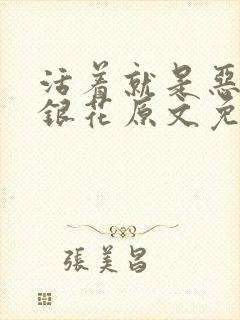 活着就是恶
银花原文免
張美昌